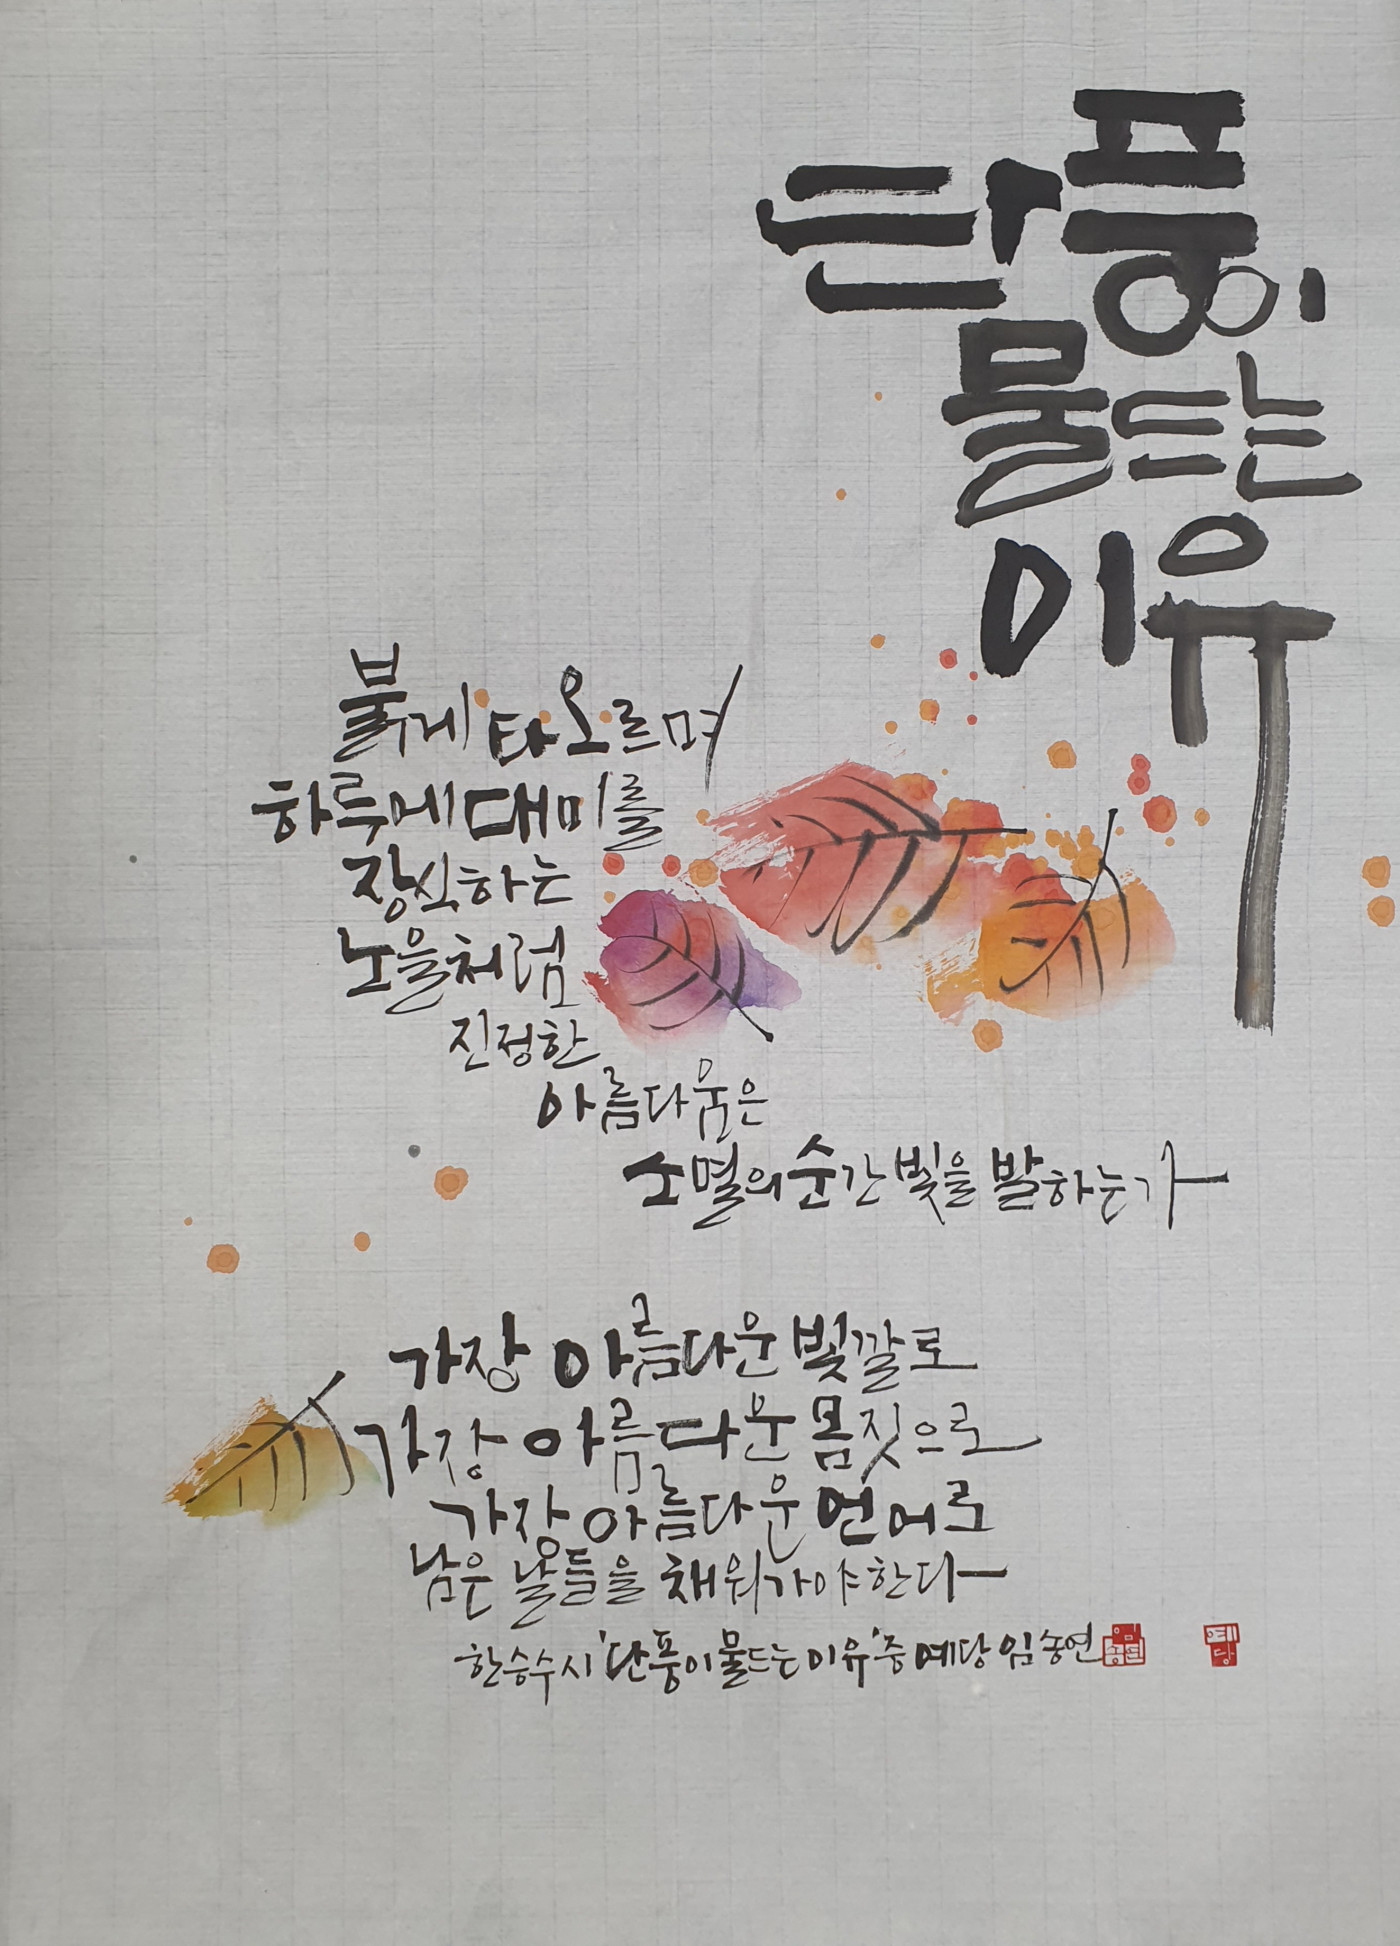 단풍이
물드는
이유
붉게 타오르며
하루에 대미를
장식하는
노을처럼
진정한
아름다움은
소멸의 순간 빛을 발하는가
가장 아름다운 빛깔로
가장 아름다운 몸짓으로
가장 아름다운 언어로
남은 날들을 채워가야한다
한승수시 '단풍이 물드는 이유' 중 예당 임송연
임송연
예당